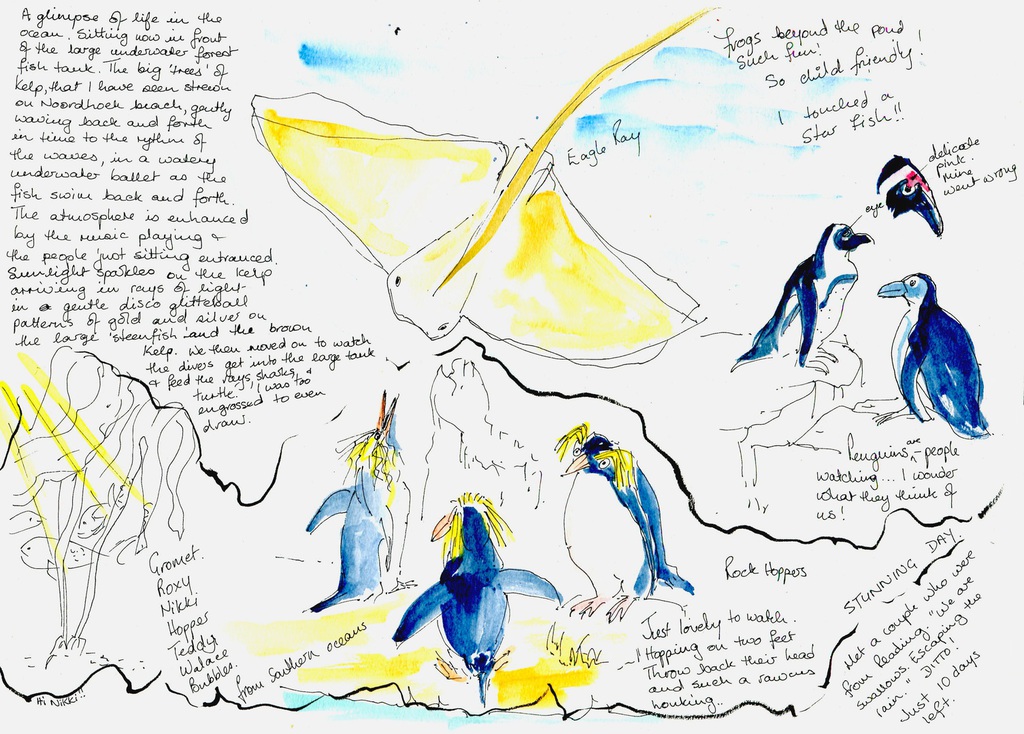 A glimpse of life in the
ocean. Sitting now in front
of the large underwater forest
fish tank. The big 'trees' of
Kelp, that I have seen strewn
on Noordhoek beach, gently
waving back and forth
in time to the rythm of
the waves, in a watery
underwater ballet as the
fish swim back and forth.
The atmosphere is enhanced
by the music playing &
the people just sitting entranced.
Sunlight sparkles on the kelp
arriving in rays of light
in a gentle disco glitterball
patterns of gold and silver on
the large 'steenfish' and the brown
Kelp. We then moved on to watch
the divers get into the large tank
& feed the rays, sharks, &
turtle. I was too
engrossed to even
draw.
Eagle Ray
frogs beyond the pond!
Such fun!
So child friendly!
I touched a
Star fish!!
delicate
pink.
Mine
went wrong
eye
Penguins are people
watching... I wonder
what they think of
us!
Gromet.
Roxy
Nikki
Hopper
Teddy
Walace
Bubbles.
Hi Nikki!!
from Southern oceans
Rock Hoppers
Just lovely to watch.
Hopping on two feet
Throw back their head
and such a raucous
honking..
STUNNING DAY.
Met a couple who were
from Reading. "We are
swallows. Escaping the
rain." DITTO!
Just 10 days
left.